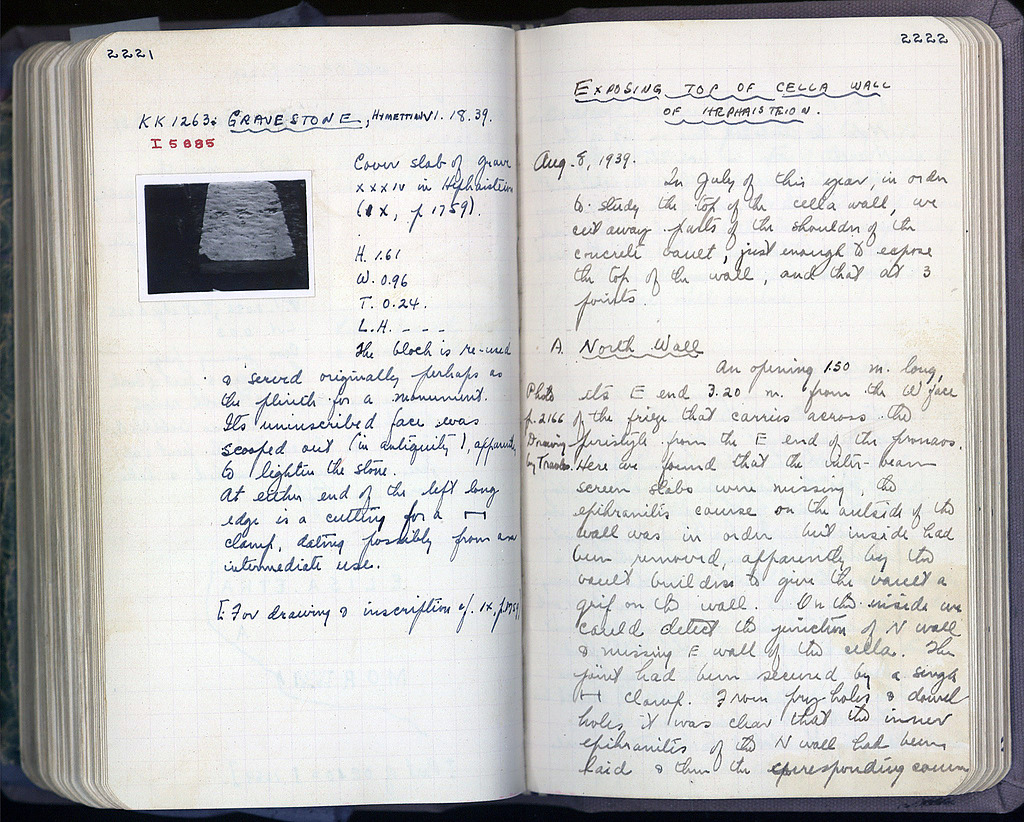 2221
KK 1263: GRAVESTONE, HYMETTIAN VI. 18. 39.
I 5885
Cover slab of grave
XXXIV in Hephaisteion
(IX, p 1759).
H. 1.61
W. 0.96
T. 0.24.
L.H. - - -
The block is re-used
& served originally perhaps as
the plinth for a monument.
Its uninscribed face was
scooped out (in antiquity), apparently
to lighten the stone.
At either end of the left long
edge is a cutting for a ⊢⊣
clamp, dating possibly from an
intermediate use.
[For drawing & inscription cf. IX, p. 1759]
2222
EXPOSING TOP OF CELLA WALL
OF HEPHAISTEION.
Aug. 8, 1939.
In July of this year, in order
to study the top of the cella wall, we
cut away parts of the shoulders of the
concrete vault, just enough to expose
the top of the wall, and that at 3
points.
A. North Wall
An opening 1.50 m. long,
Photo its E end 3.20 m. from the W face
p. 2166 of the frieze that carries across the
Drawing peristyle from the E end of the pronaos.
by Travlos. Here we found that the inter-beam
screen slabs were missing, the
epikranitis course on the outside of the
wall was in order but inside had
been removed, apparently by the
vault builders to give the vault a
grip on the wall. On the inside we
could detect the junction of N wall
& missing E wall of the cella. The
joint had been secured by a single
⊢⊣ clamp. From pry-holes & dowel
holes it was clear that the inner
epikranitis of the N wall had been
laid & then the corresponding course